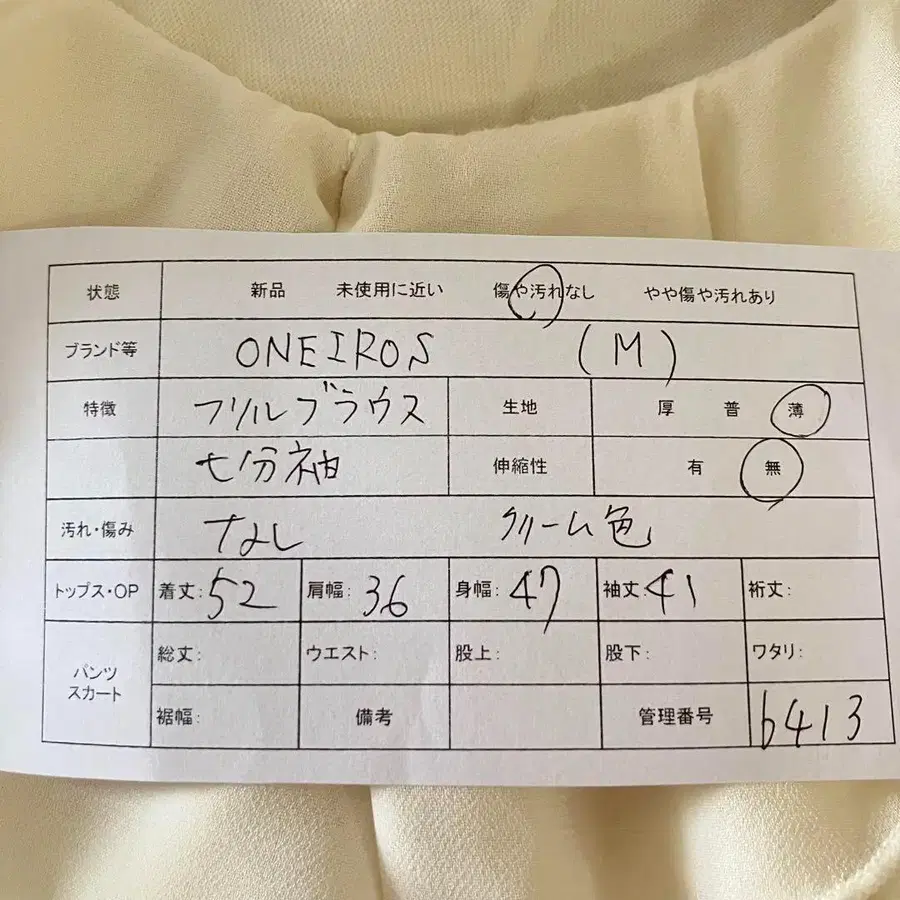 状態 新品 未使用に近い 傷や汚れなし やや傷や汚れあり
ブランド等 ONEIROS (M)
特徴 フリルブラウス 生地 厚 普 薄
七分袖 伸縮性 有 無
汚れ・傷み なし クリーム色
トップス・OP 着丈:52 肩幅:36 身幅:47 袖丈:41 裄丈:
パンツ スカート 総丈: ウエスト: 股上: 股下: ワタリ:
裾幅: 備考 管理番号 6413